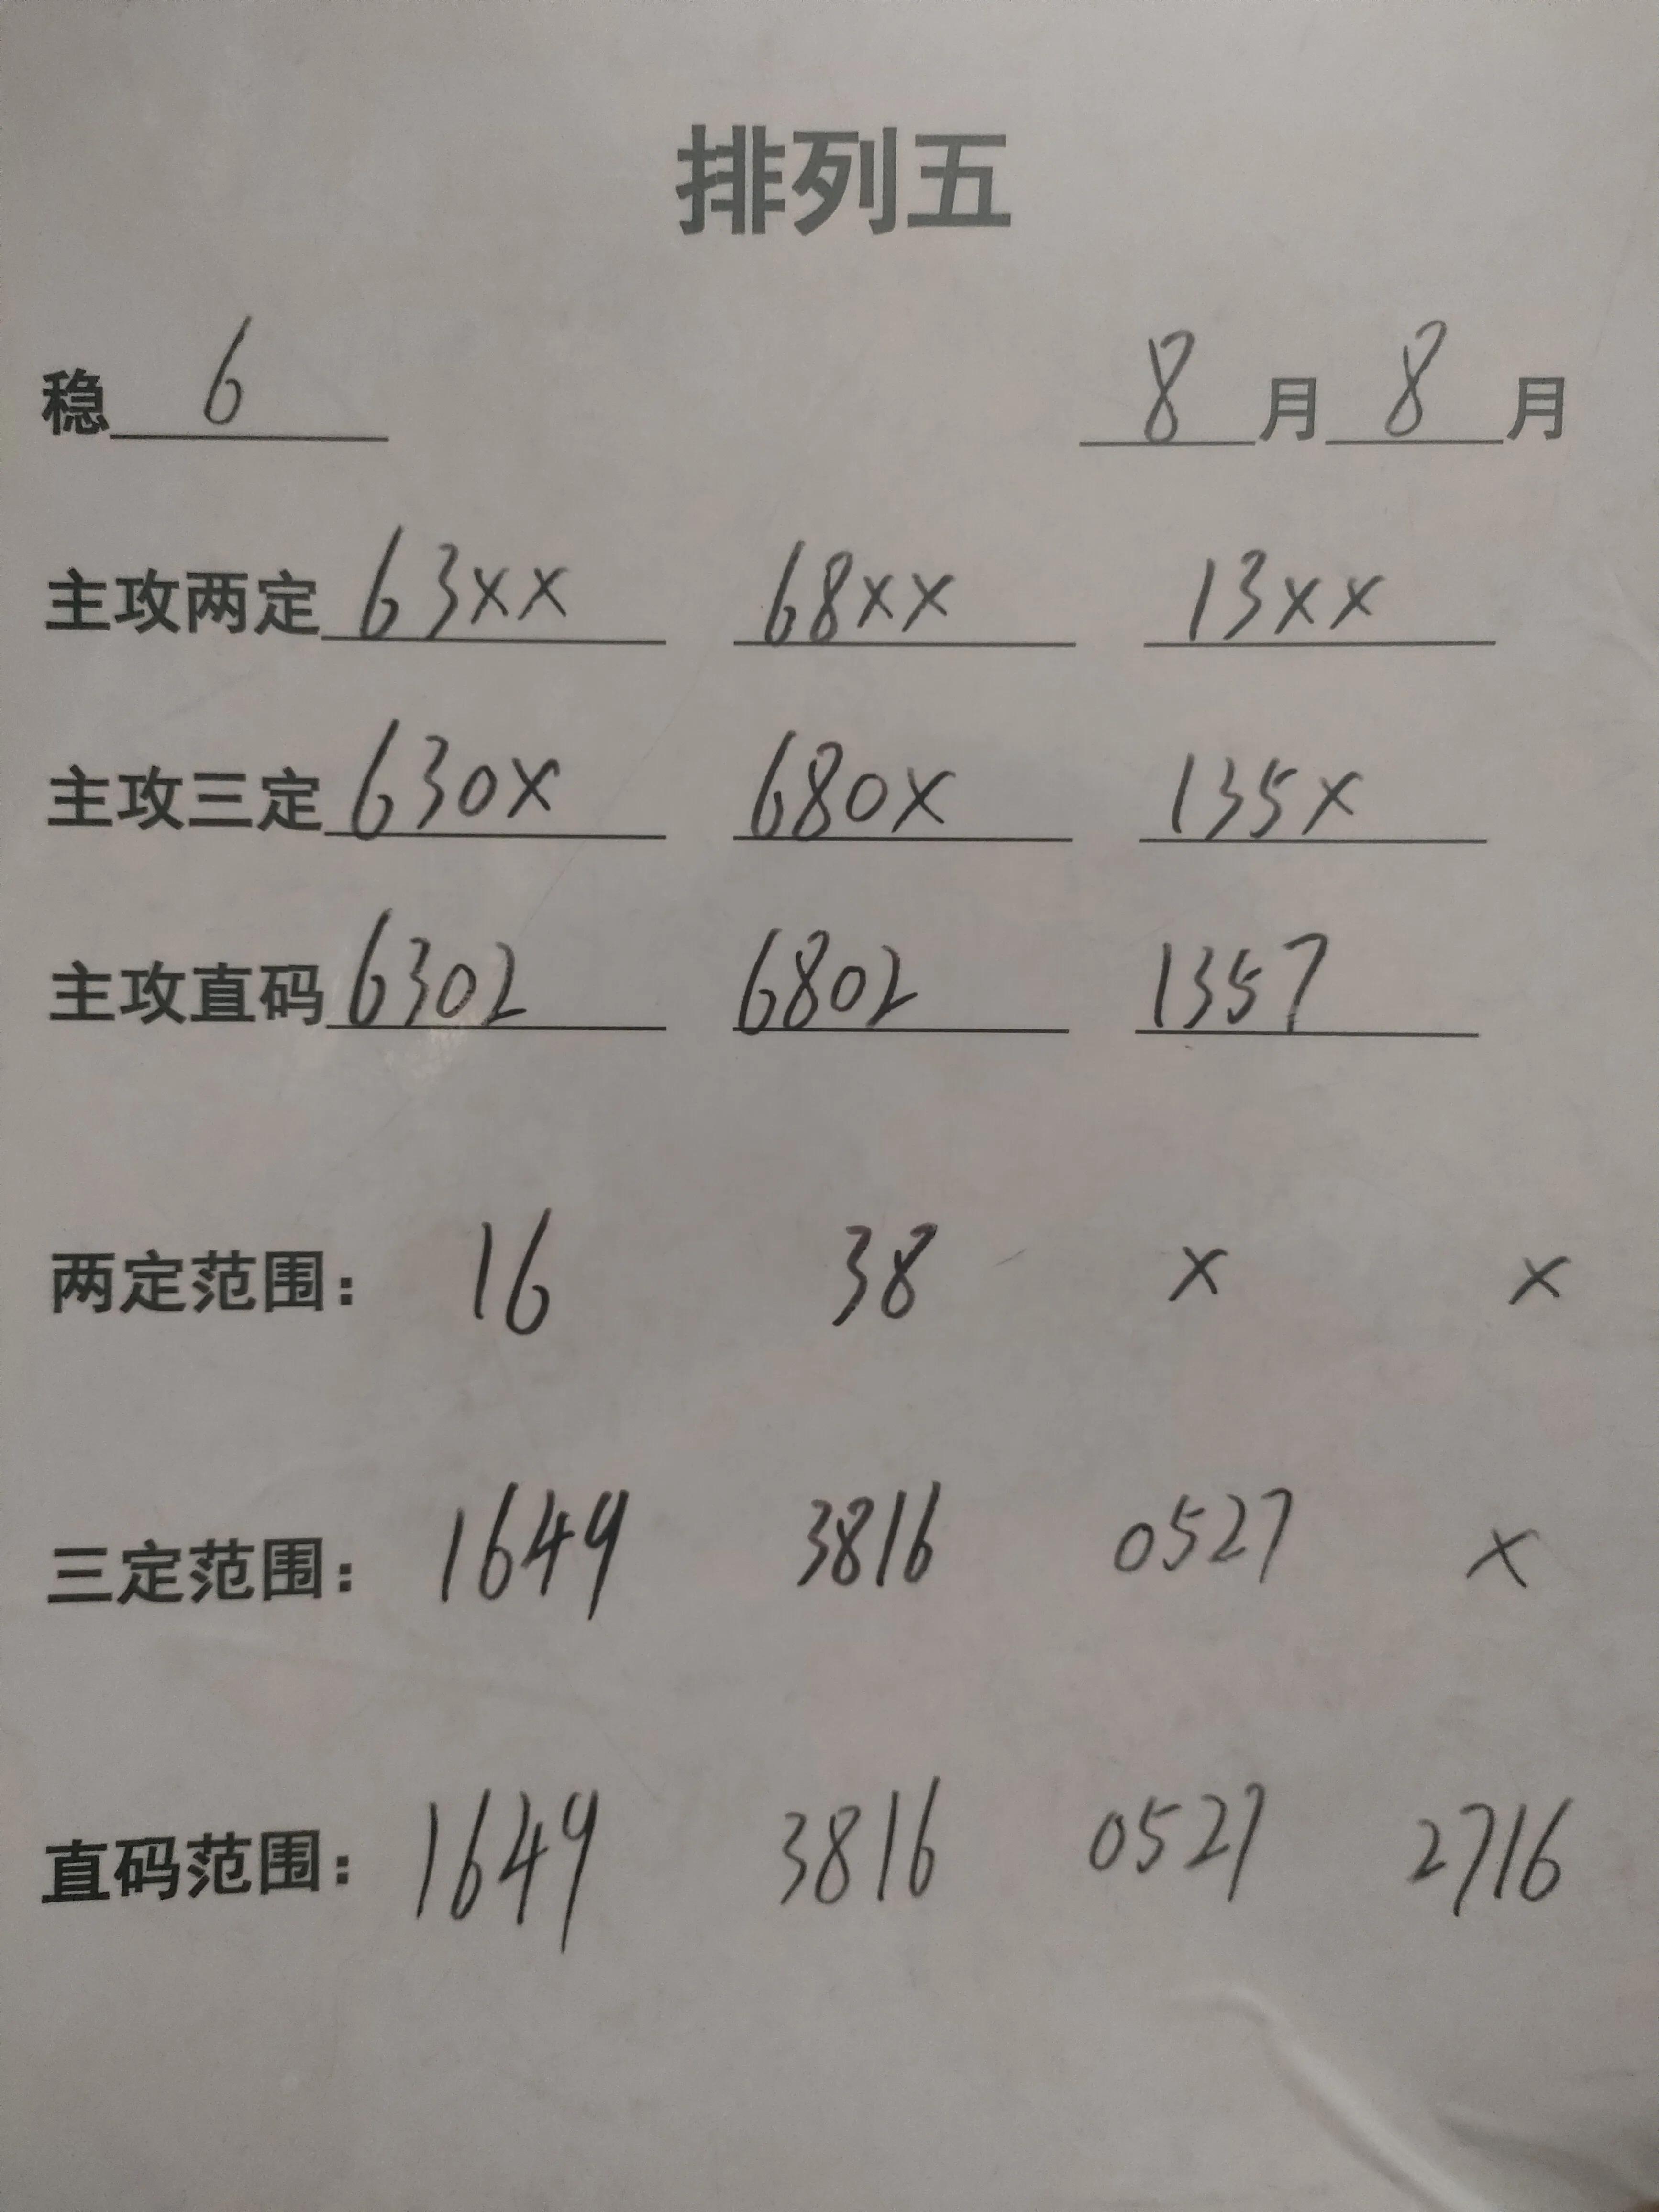 排列五
稳 6 8月8月
主攻两定 63xx 68xx 13xx
主攻三定 630x 680x 135x
主攻直码 6302 6802 1357
两定范围: 16 38 x x
三定范围: 1649 3816 0527 x
直码范围: 1649 3816 0527 2716